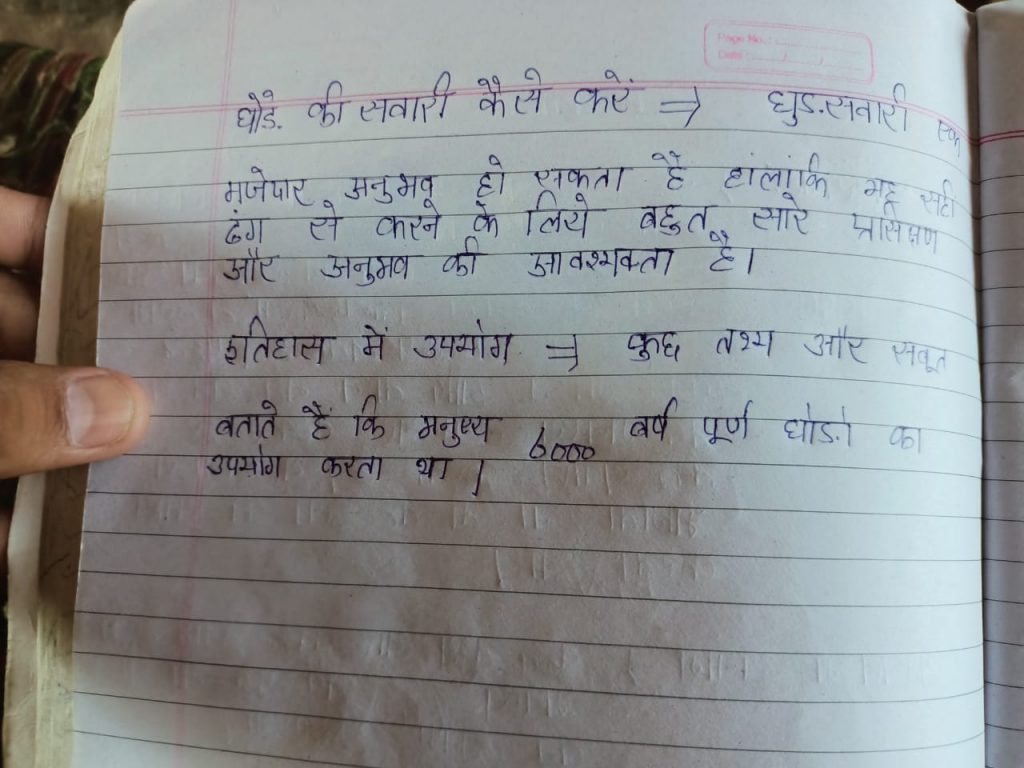 Page No.:
Date:
घोड़े की सवारी कैसे करें ⇒ घुड़सवारी एक
मजेदार अनुभव हो सकता है हांलांकि यह सही
ढंग से करने के लिये बहुत सारे प्रसिक्षण
और अनुभव की आवश्यकता है।
इतिहास में उपयोग ⇒ कुछ तथ्य और सबूत
बताते हैं कि मनुष्य 6000 वर्ष पूर्ण घोड़ो का
उपयोग करता था।